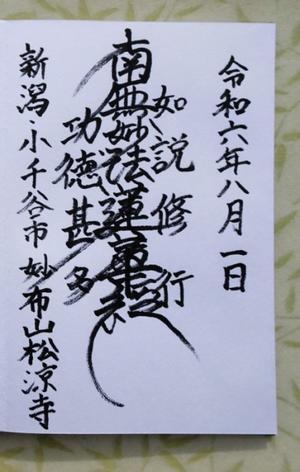 令和六年八月一日
如説修行
南無妙法蓮華経
功徳甚多
新潟・小千谷市 妙布山松凉寺